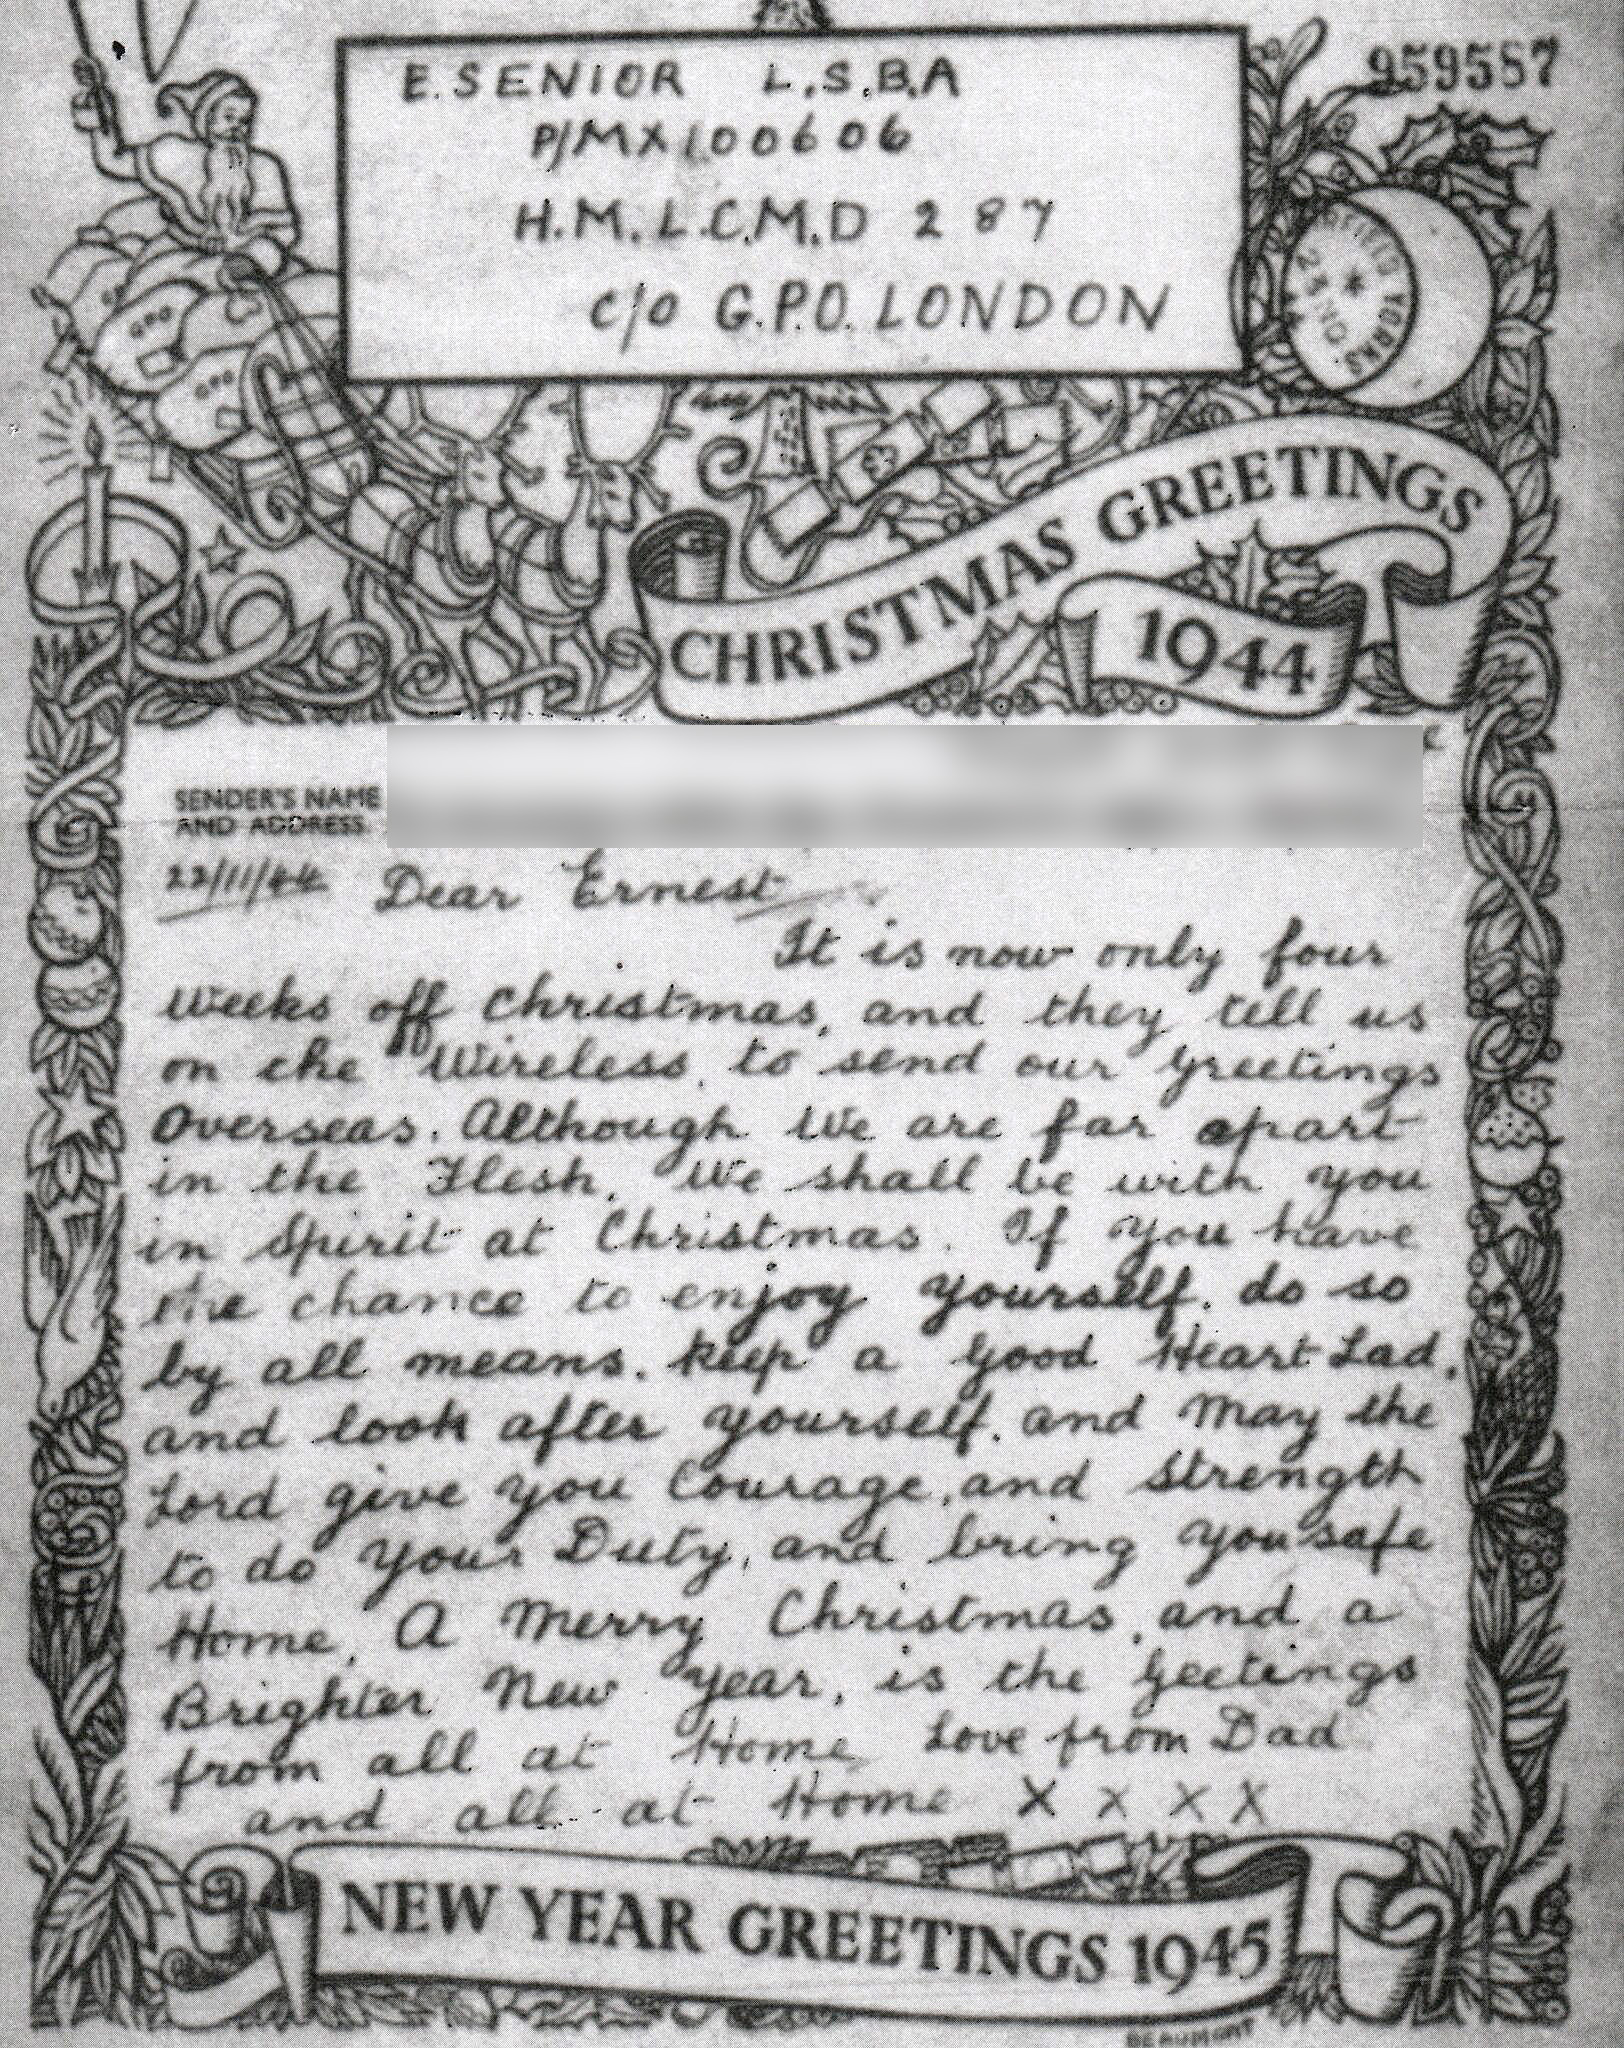 E. SENIOR L.S.B.A
P/MX100606
H.M.L.C.M.D 287
c/o G.P.O. LONDON
959557
YORKS
GPO
GPO
CHRISTMAS GREETINGS
1944
SENDER'S NAME
AND ADDRESS
22/11/44 Dear Ernest
It is now only four
weeks off Christmas, and they tell us
on the Wireless, to send our greetings
Overseas. Although We are far apart
in the Flesh, We shall be with you
in Spirit at Christmas. If you have
the chance to enjoy yourself, do so
by all means. Keep a good Heart Lad,
and look after yourself, and May the
Lord give you Courage, and Strength
to do your Duty, and bring you safe
Home. A Merry Christmas, and a
Brighter New Year, is the Geetings
from all at Home, Love from Dad
and all at Home X X X X
NEW YEAR GREETINGS 1945
BEAUMONT